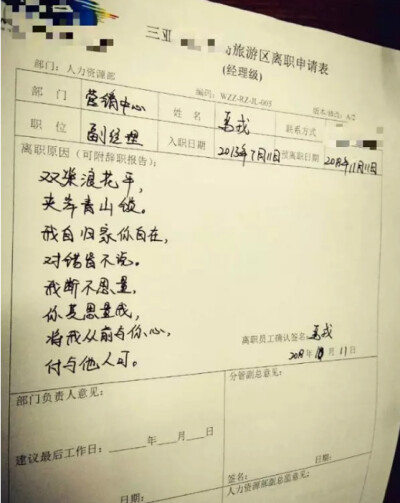 三亚 旅游区离职申请表
(经理级)
部门：人力资源部 编码：WZZ-RZ-JL-005 版本/修改：A/2
部门 营销中心 姓名 联系方式
职位 副经理 入职日期 2013年7月11日 预离职日期 2018年11月11日
离职原因（可附辞职报告）：
双桨浪花平，
夹岸青山锁。
我自归家你自在，
对错皆不说。
我断不思量，
你莫思量我，
将我从前与你心，
付与他人可。
离职员工确认签名：
2018年10月11日
部门负责人意见：
分管副总意见：
建议最后工作日：____年__月__日
签名：
日期：
日期：
人力资源部副总意见：